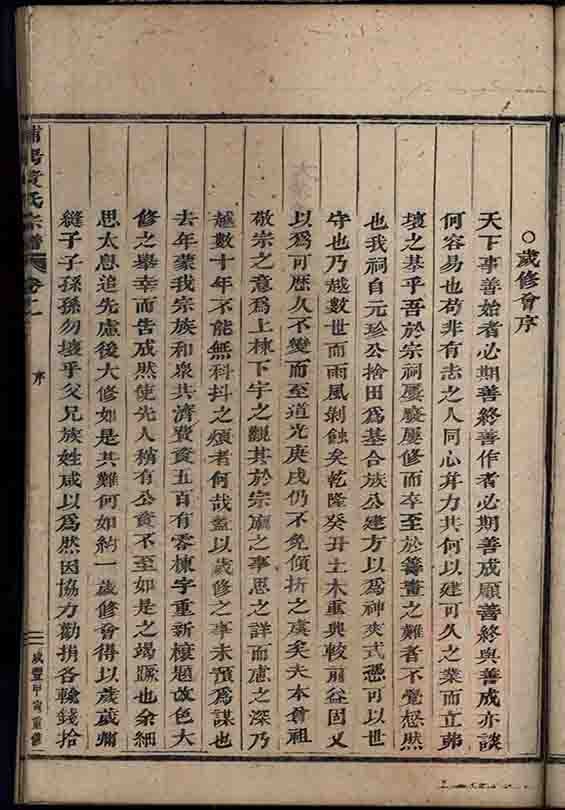 ○歲修會序
天下事善始者必期善終善作者必期善成顧善終與善成亦談
何容易也苟非有志之人同心弁力共何以建可久之業而立弗
壞之基乎吾於宗祠屢廢屢修而卒至於籌畫之難者不覺愀然
也我祠自元珍公捨田為基合族公建方以為神爽式憑可以世
守也乃越數世而雨風剝蝕矣乾隆癸丑土木重興較前益固又
以為可歷久不變而至道光庚戌仍不免傾折之虞矣夫本尊祖
敬宗之意為上棟下宇之觀其於宗廟之事思之詳而慮之深乃
越數十年不能無科抖之煩者何哉蓋以歲修之事未預為謀也
去年蒙我宗族和衷共濟費資五百有零棟宇重新榱題改色大
修之舉幸而告成然使先人稍有公資不至如是之竭蹶也余細
思太息追先慮後大修如是其難何如約一歲修會得以歲歲彌
縫子子孫孫勿壞乎父兄族姓咸以為然因協力勸捐各輸錢拾
浦陽 氏宗譜 卷之 序
咸豐甲寅重修